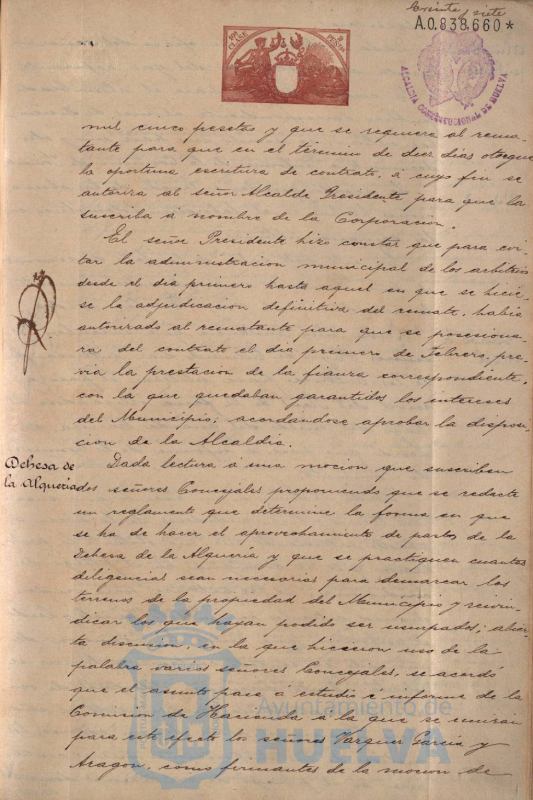 treinta y siete
A.0.838.660*
CLASE
PESETA
ALCALDIA CONSTITUCIONAL DE HUELVA
mil cinco pesetas y que se requiera al rema-
tante para que en el término de diez dias otorgue
la oportuna escritura de contrato, á cuyo fin se
autoriza al señor Alcalde Presidente para que la
suscriba á nombre de la Corporacion.
El señor Presidente hizo constar que para evi-
tar la administracion municipal de los arbitrios
desde el dia primero hasta aquel en que se hicie-
se la adjudicacion definitiva del remate, habia
autorizado al rematante para que se posesiona-
ra del contrato el dia primero de Febrero, pre-
via la prestacion de la fianza correspondiente,
con la que quedaban garantidos los intereses
del Municipio; acordándose aprobar la disposi-
cion de la Alcaldia.
Dehesa de
la Alquería
Dada lectura á una mocion que suscriben
dos señores Concejales proponiendo que se redacte
un reglamento que determine la forma en que
se ha de hacer el aprovechamiento de pastos de la
Dehesa de la Alquería y que se practiquen cuantas
diligencias sean necesarias para demarcar los
terrenos de la propiedad del Municipio y reivin-
dicar los que hayan podido ser usurpados; abier-
ta discusion, en la que hicieron uso de la
palabra varios señores Concejales, se acordó
que el asunto pase á estudio é informe de la
Comision de Hacienda á la que se uniran
para este efecto los señores Vazquez Garcia y
Aragon, como firmantes de la mocion de
Ayuntamiento de
HUELVA